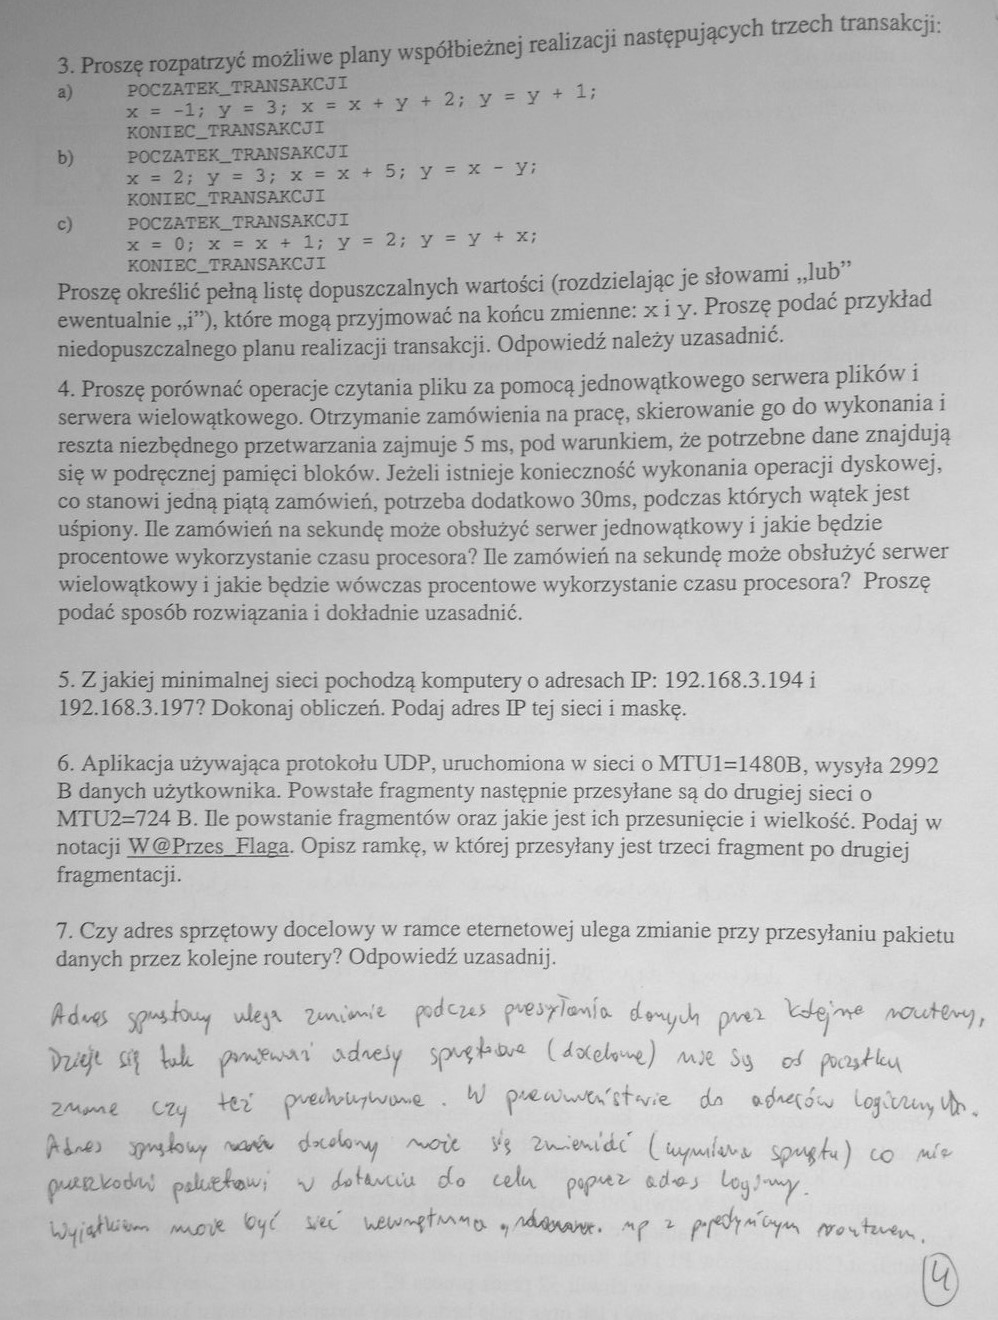 3. Proszę rozpatrzyć możliwe plany współbieżnej realizacji następujących trzech transakcji:
a) POCZATEK_TRANSAKCJI
x = -1; y = 3; x = x + y + 2; y = y + 1;
KONIEC_TRANSAKCJI
b) POCZATEK_TRANSAKCJI
x = 2; y = 3; x = x + 5; y = x - y;
KONIEC_TRANSAKCJI
c) POCZATEK_TRANSAKCJI
x = 0; x = x + 1; y = 2; y = y + x;
KONIEC_TRANSAKCJI
Proszę określić pełną listę dopuszczalnych wartości (rozdzielając je słowami „lub”
ewentualnie „i”), które mogą przyjmować na końcu zmienne: x i y. Proszę podać przykład
niedopuszczalnego planu realizacji transakcji. Odpowiedź należy uzasadnić.
4. Proszę porównać operacje czytania pliku za pomocą jednowątkowego serwera plików i
serwera wielowątkowego. Otrzymanie zamówienia na pracę, skierowanie go do wykonania i
reszta niezbędnego przetwarzania zajmuje 5 ms, pod warunkiem, że potrzebne dane znajdują
się w podręcznej pamięci bloków. Jeżeli istnieje konieczność wykonania operacji dyskowej,
co stanowi jedną piątą zamówień, potrzeba dodatkowo 30ms, podczas których wątek jest
uśpiony. Ile zamówień na sekundę może obsłużyć serwer jednowątkowy i jakie będzie
procentowe wykorzystanie czasu procesora? Ile zamówień na sekundę może obsłużyć serwer
wielowątkowy i jakie będzie wówczas procentowe wykorzystanie czasu procesora? Proszę
podać sposób rozwiązania i dokładnie uzasadnić.
5. Z jakiej minimalnej sieci pochodzą komputery o adresach IP: 192.168.3.194 i
192.168.3.197? Dokonaj obliczeń. Podaj adres IP tej sieci i maskę.
6. Aplikacja używająca protokołu UDP, uruchomiona w sieci o MTU1=1480B, wysyła 2992
B danych użytkownika. Powstałe fragmenty następnie przesyłane są do drugiej sieci o
MTU2=724 B. Ile powstanie fragmentów oraz jakie jest ich przesunięcie i wielkość. Podaj w
notacji W@Przes_Flaga. Opisz ramkę, w której przesyłany jest trzeci fragment po drugiej
fragmentacji.
7. Czy adres sprzętowy docelowy w ramce eternetowej ulega zmianie przy przesyłaniu pakietu
danych przez kolejne routery? Odpowiedź uzasadnij.
Adres sprzętowy ulega zmianie podczas przesyłania danych przez kolejne routery,
Dzieje się tak ponieważ adresy sprzętowe (docelowe) nie są od początku
znane czy też przechowywane. W przeciwieństwie do adresów logicznych.
Adres sprzętowy docelowy może się zmienić (wymiana sprzętu) co nie
przeszkodzi pakietowi w dotarciu do celu poprzez adres logiczny.
Wyjątkiem może być sieć wewnętrzna, np z pojedynczym routerem.
4